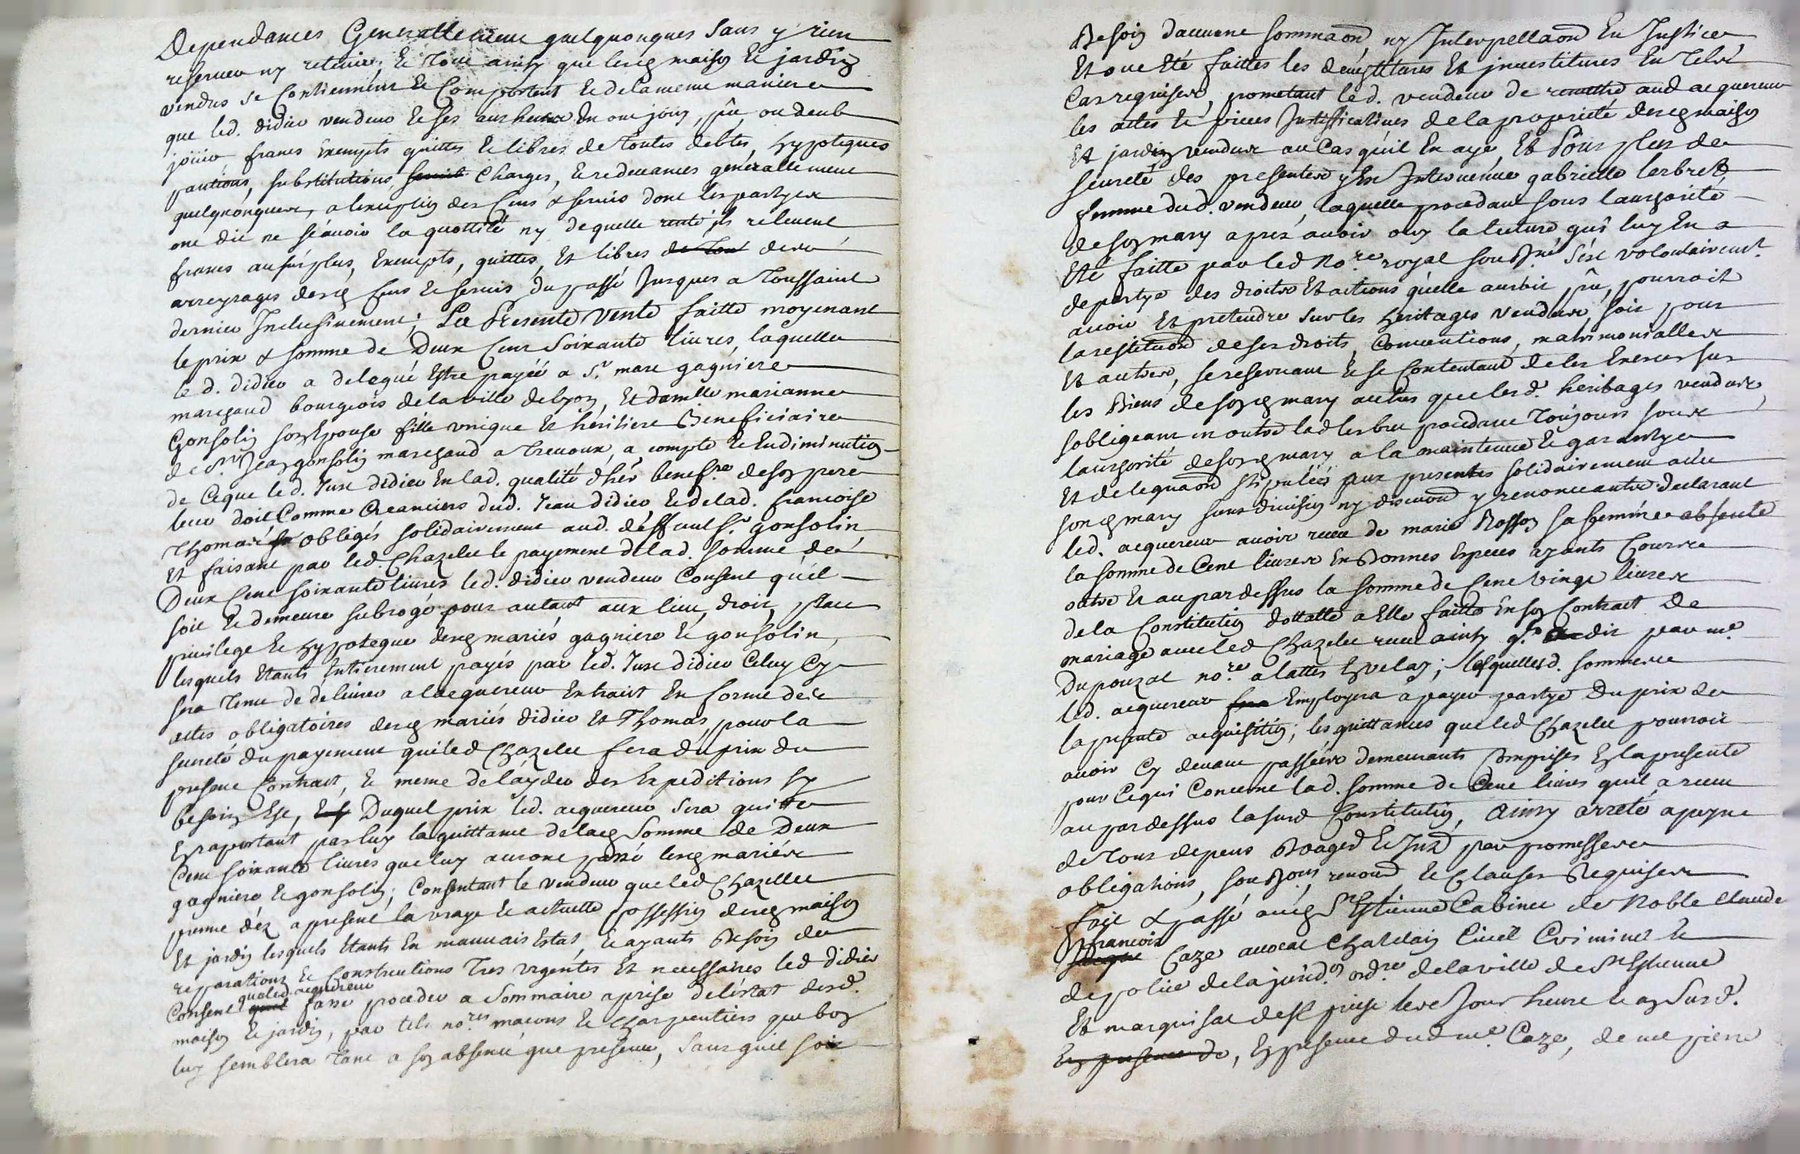 Dependances Generallement quelquonques sans y rien
reserver ny retenir, Et Tout ainsy que lesd maison Et jardin
vendus se Contiennent Et Comportent Et de la meme maniere
que led. didier vendeur Et ses autheurs En ont jouy, pû, ou deub
jouir francs Exempts quittes Et libres de Toutes debtes, hypoteques
pautions, substitutions Charges, Et redevances generallement
quelquonques, a lexeption des Cens & servis dont les partyes
ont dit ne sçavoir la quottité ny de quelle rente ils relevent
francs au surplus, Exempts, quittes, Et libres de Tout des
arreyrages desd Cens Et servis du passé Jusques a Toussaint
dernier Inclusivement; La Presente Vente faitte moyenant
le prix & somme de Deux Cent Soixante livres, laquelle
le d. didier a delegué Estre payée a Sr. marc gagniere
marchand bourgeois de la ville de lyon, Et damlle marianne
Gonsolin son Epouse fille unique Et héritiere Beneficiaire
de Sr Jean gonsolin marchand a Trevoux, a compte Et En diminution
de Ceque le d. Just didier En lad. qualité d'hér benefre de son pere
leur doit Comme Creanciers dud. Jean didier Et de lad. francoise
Thomas obligés solidairement aud. déffunt Sr. gonsolin,
Et faisant par led. Chazelle le payement de lad. somme de
Deux Cent soixante livres led. didier vendeur Consent qu'il
soit Et demeure subrogé pour autant aux lieu, droit, place
privilege Et hypoteque desd mariés gagniere Et gonsolin,
lesquels Etants Entierement payés par led. Just didier Celuy Cy
sera Tenu de delivrer a lacquereur Extrait En forme des
actes obligatoires desd mariés didier Et Thomas, pour la
sureté du payement que led Chazelle fera du prix du
present Contrat, Et meme de layder des Expeditions sy
besoin Est, Duquel prix led. acquereur sera quitte
Ex raportant par luy la quittance de lad Somme de Deux
Cent soixante livres que luy auront passé lesd mariés
gagniere Et gonsolin; Consentant le vendeur que led Chazelle
prenne déz a present la vraye Et actuelle possession desd maison
Et jardin lesquels Etants En mauvais Estat, Et ayants Besoin de
reparations Et Constructions Tres urgentes Et necessaires led didier
Consent que led. acquereur fasse proceder a sommaire aprise de lestat desd.
maison Et jardin, par tels nores macons Et charpentiers que bon
luy semblera Tant a son absence que presence, sans quil soit
Besoin daucune sommaon, ny Interpellaon En Justice
Et ont Eté faittes les devestitures Et investitures En Tel
Cas requises, prometant le d. vendeur de remettre aud acquereur
les actes Et pieces Justificatives de la proprieté desd maison
Et jardin vendus au Cas qu'il En aye, Et Pour plus de
seureté des presentes y Est Intervenue gabrielle lerbret
femme dud. vendeur, laquelle procedant sous lauthorité
de son mary apres avoir ouy la lecture qui luy En a
Eté faitte par led nore. royal sousné sest volontairemt.
departye des droits Et actions qu'elle auroit, pû, pourroit
avoir Et pretendre sur les heritages vendus, soit pour
la restituon de ses droits, Conventions, matrimonialles
Et autres, se reservant Et se Contentant de les Exercer sur
les Biens de son d mary autres que lesd. heritages vendus,
sobligeant en outre lad lerbret procedant Toujours sous
lauthorité de son d mary a la maintenue Et garantye
Et delegaon stipulées aux presentes solidairement avec
son d mary sans division ny discuon y renonceantes. Declarant
led. acquereur avoir receu de marie Rosson sa femme absente
la somme de Cent livres En Bonnes Especes ayants Cours
outre Et au par dessus la somme de Cent vingt livres
de la Constitution dottalle a Elle faitte En son Contract de
mariage avec led Chazelle receu ainsy quil a dit par me.
Dupouzat nore. a lattes Esvelay; lesquelles d. sommes
led. acquereur Employera a payer partye du prix de
la presente acquisition; les quittances que led Chazelle pourroit
avoir Cy devant passées demeurants Comprises En la presente
pour Cequi Concerne lad. somme de Cent livres qu'il a receu
au par dessus la susd Constitution, ainsy arreté a peyne
de tous depens Et Jurd par promesses
obligations, renond Et Clauses Requises
fait & passé aud St Estienne Cabinet de Noble Claude
francois Caze avocat Chatelain Civil Criminel Et
de police de la juridon. ordre. de la ville de St Estienne
Et marquisat de St priest le Jour heure Et an susd.
En presence de, En presence dud me. Caze, de me pierre